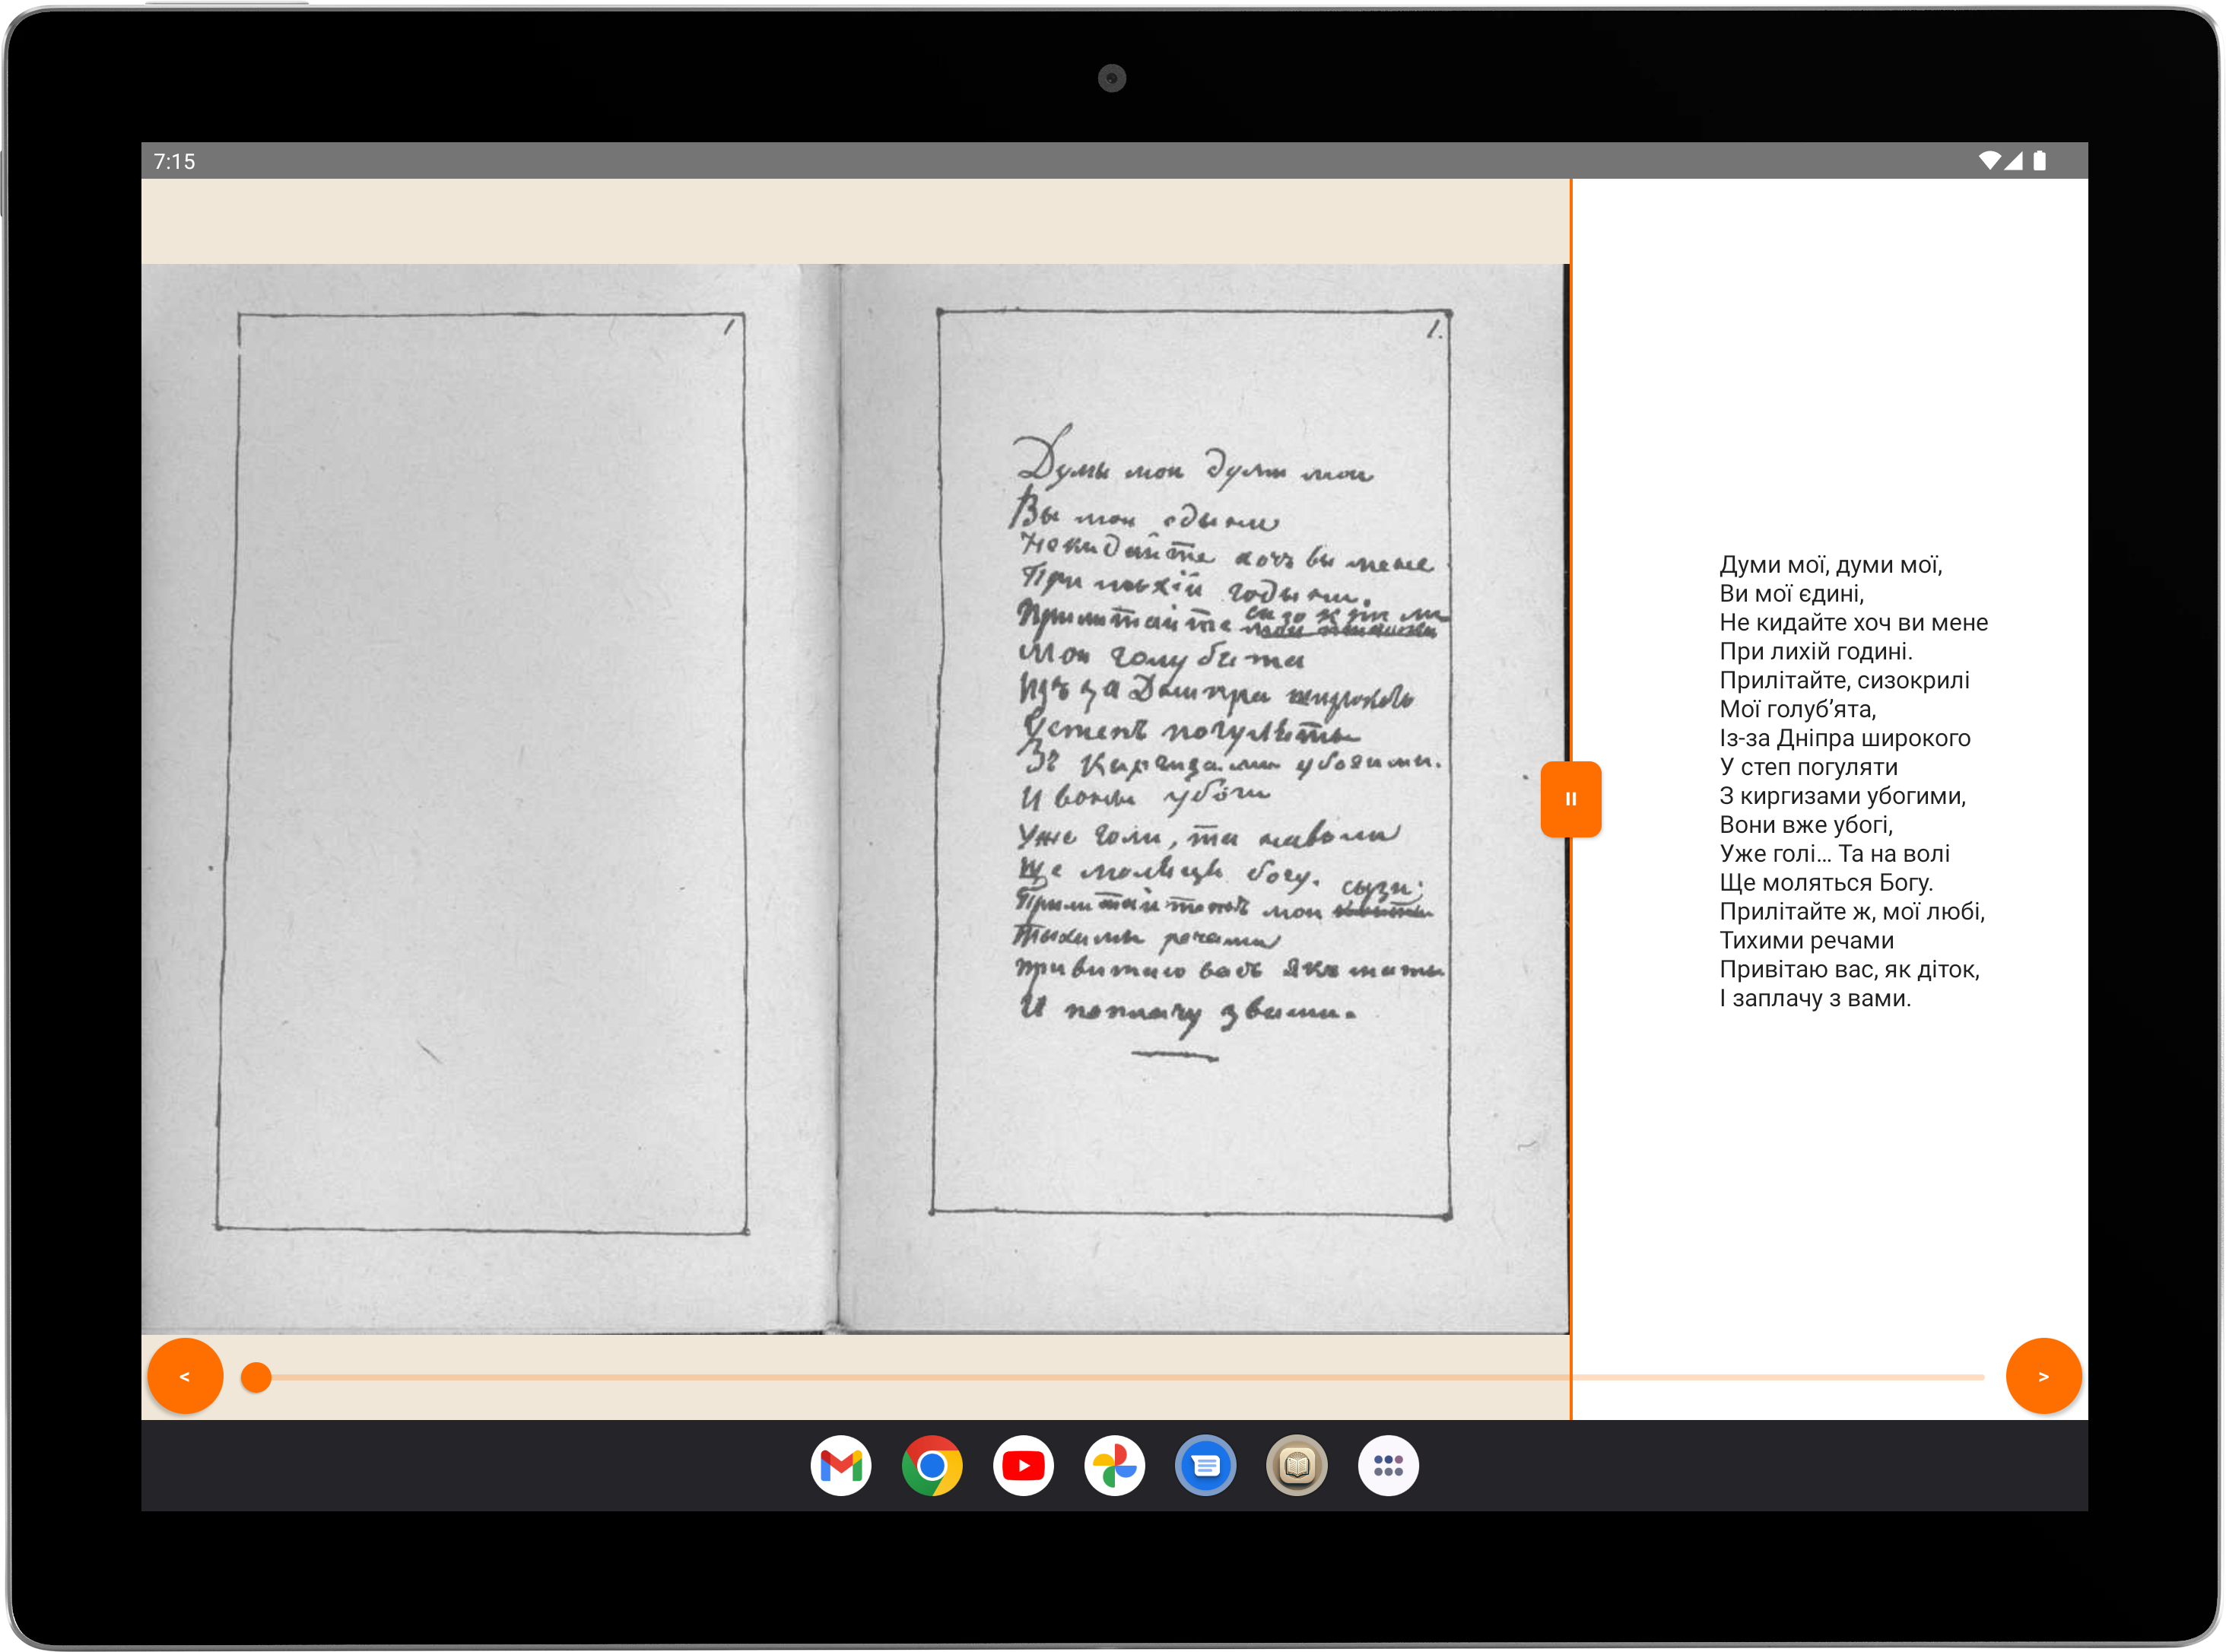 7:15
1
1.
Думы мои думы мои
Вы мои едыни
Некидайте хочъ вы мене
При лыхій годыни.
Прилитайте сизокрыли
Мои голубята
Изъ за Днипра широкого
Устепъ погуляты
Зъ Киргизами убогими.
И воны убоги
Уже голи, та наволи
Ще молятця богу.
Прилитайте жъ мои сызи;
Тыхими речами
Привитаю васъ якъ
И поплачу з вами.
Думи мої, думи мої,
Ви мої єдині,
Не кидайте хоч ви мене
При лихій годині.
Прилітайте, сизокрилі
Мої голуб’ята,
Із-за Дніпра широкого
У степ погуляти
З киргизами убогими,
Вони вже убогі,
Уже голі… Та на волі
Ще моляться Богу.
Прилітайте ж, мої любі,
Тихими речами
Привітаю вас, як діток,
І заплачу з вами.
<
>